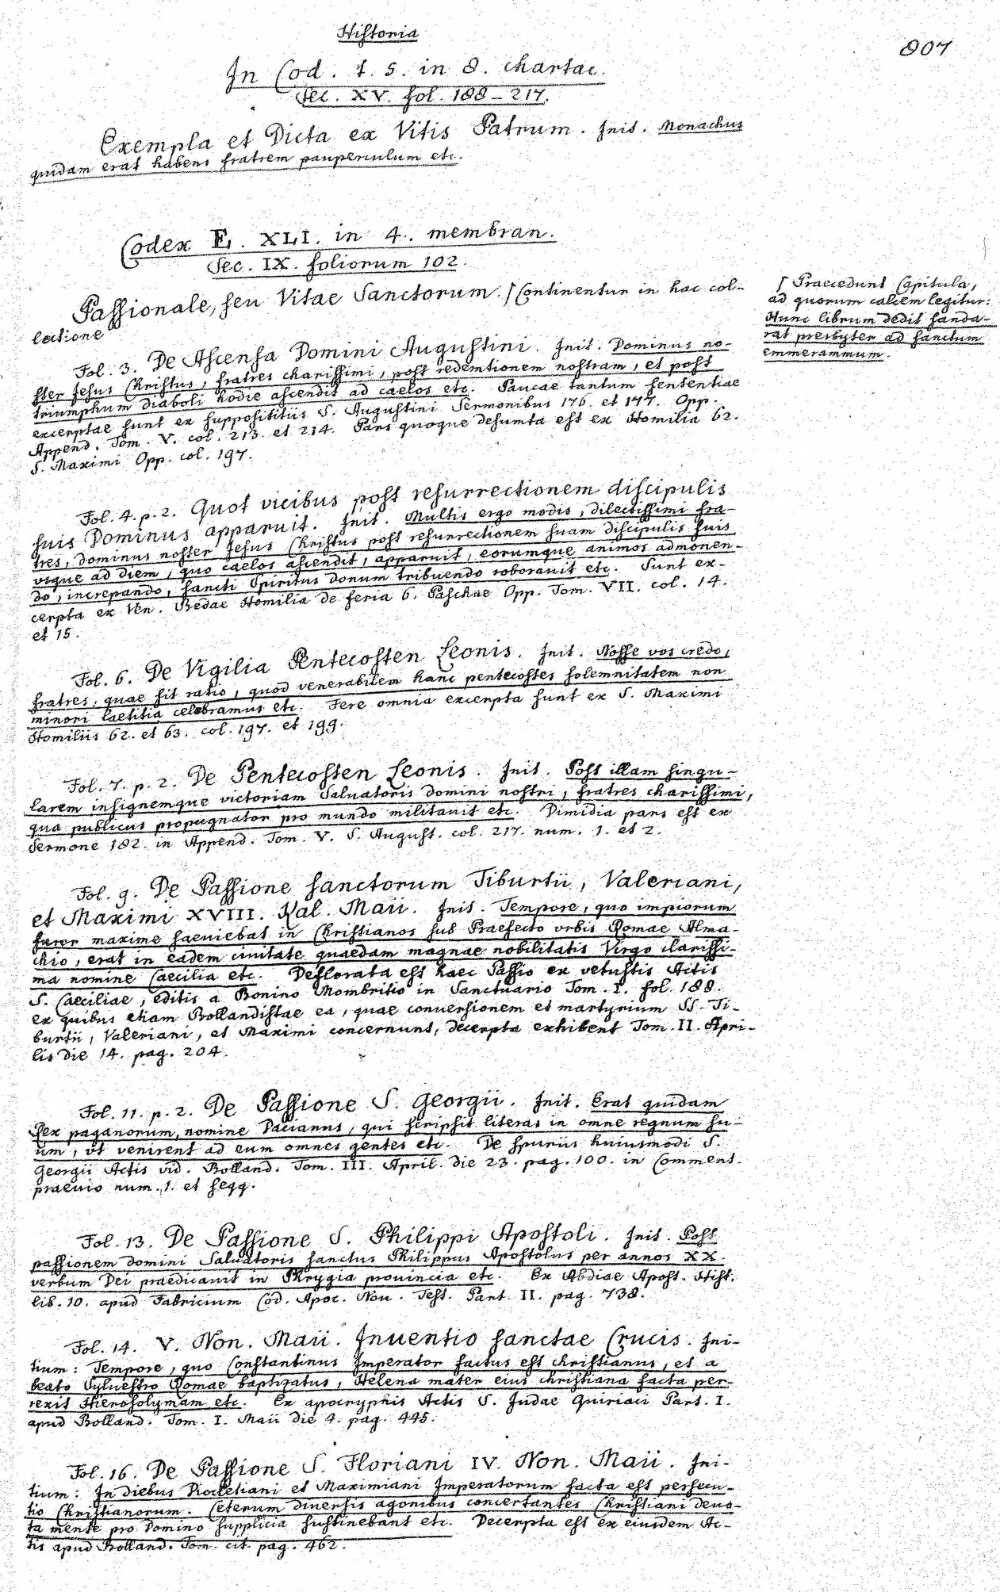 Historia
807
In Cod. t. 5. in 8. chartac.
Sec. XV. fol. 188–217.
Exempla et Dicta ex Vitis Patrum. Init. Monachus
quidam erat habens fratrem pauperculum etc.
Codex E. XLI. in 4. membran.
Sec. IX. foliorum 102.
Passionale, seu Vitae Sanctorum. / Continentur in hac col-
lectione
/ Praecedunt Capitula,
ad quorum calcem legitur:
Hunc librum dedit sanda-
rat presbyter ad sanctum
emmerammum.
Fol. 3. De Ascensa Domini Augustini. Init. Dominus no-
ster Jesus Christus, fratres charissimi, post redemtionem nostram, et post
triumphum diaboli hodie ascendit ad caelos etc. Paucae tantum sententiae
excerptae sunt ex supposititiis S. Augustini Sermonibus 176. et 177. Opp.
Append. Tom. V. col. 213. et 214. Pars quoque desumta est ex Homilia 62.
S. Maximi Opp. col. 197.
Fol. 4. p. 2. Quot vicibus post resurrectionem discipulis
suis Dominus apparuit. Init. Multis ergo modis, dilectissimi fra-
tres, dominus noster Jesus Christus post resurrectionem suam discipulis suis
vsque ad diem, quo caelos ascendit, apparuit, eorumque animos admonen-
do, increpando, sancti Spiritus donum tribuendo roborauit etc. Sunt ex-
cerpta ex Ven. Bedae Homilia de feria 6. Paschae Opp. Tom. VII. col. 14.
et 15.
Fol. 6. De Vigilia Pentecosten Leonis. Init. Nosse vos credo,
fratres, quae sit ratio, quod venerabilem hanc pentecostes solemnitatem non
minori laetitia celebramus etc. Fere omnia excerpta sunt ex S. Maximi
Homiliis 62. et 63. col. 197. et 199.
Fol. 7. p. 2. De Pentecosten Leonis. Init. Post illam singu-
larem insignemque victoriam Saluatoris domini nostri, fratres charissimi,
qua publicus propugnator pro mundo militauit etc. Dimidia pars est ex
Sermone 182. in Append. Tom. V. S. August. col. 217. num. 1. et 2.
Fol. 9. De Passione sanctorum Tiburtii, Valeriani,
et Maximi XVIII. Kal. Maii. Init. Tempore, quo impiorum
furor maxime saeuiebat in Christianos sub Praefecto vrbis Romae Alma-
chio, erat in eadem ciuitate quaedam magnae nobilitatis Virgo clarissi-
ma nomine Caecilia etc. Deflorata est haec Passio ex vetustis Actis
S. Caeciliae, editis a Bonino Mombritio in Sanctuario Tom. I. fol. 188.
ex quibus etiam Bollandistae ea, quae conuersionem et martyrium SS. Ti-
burtii, Valeriani, et Maximi concernunt, decerpta exhibent Tom. II. Apri-
lis die 14. pag. 204.
Fol. 11. p. 2. De Passione S. Georgii. Init. Erat quidam
Rex paganorum, nomine Dacianus, qui scripsit literas in omne regnum su-
um, vt venirent ad eum omnes gentes etc. De spuriis huiusmodi S.
Georgii Actis vid. Bolland. Tom. III. April. die 23. pag. 100. in Comment.
praeuio num. 1. et seqq.
Fol. 13. De Passione S. Philippi Apostoli. Init. Post
passionem domini Saluatoris sanctus Philippus Apostolus per annos XX.
verbum Dei praedicauit in Phrygia prouincia etc. Ex Abdiae Apost. Hist.
lib. 10. apud Fabricium Cod. Apoc. Nou. Test. Part. II. pag. 738.
Fol. 14. V. Non. Maii. Inuentio sanctae Crucis. Ini-
tium: Tempore, quo Constantinus Imperator factus est christianus, et a
beato Syluestro Romae baptizatus, Helena mater eius christiana facta per-
rexit Hierosolymam etc. Ex apocryphis Actis S. Judae Quiriaci Part. I.
apud Bolland. Tom. I. Maii die 4. pag. 445.
Fol. 16. De Passione S. Floriani IV. Non. Maii. Ini-
tium: In diebus Diocletiani et Maximiani Imperatorum facta est persecu-
tio Christianorum. Ceterum diuersis agonibus concertantes Christiani deuo-
ta mente pro Domino supplicia sustinebant etc. Decerpta est ex eiusdem Ac-
tis apud Bolland. Tom. cit. pag. 462.